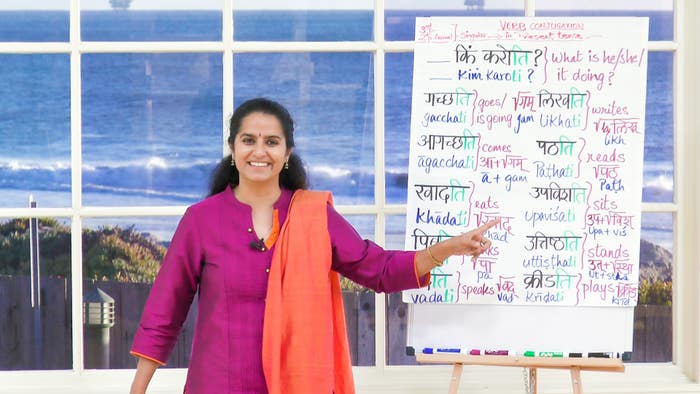 VERB CONJUGATION
Singular in Present tense
किं करोति? What is he/she/
kiṁ karoti? it doing?
गच्छति goes/ √गम् लिखति writes
gacchati is going gam likhati √लिख्
likh
आगच्छति comes पठति reads
āgacchati आ+√गम् Paṭhati √पठ्
ā+gam Path
खादति eats उपविशति sits
khādati √खाद् upaviśati उप+√विश्
khād upa+viś
उत्तिष्ठति stands
√पा uttiṣṭhati उत्+√स्था
pā ut+sthā
ति speaks √वद् क्रीडति plays √क्रीड्
vadati vad krīḍati krīḍ